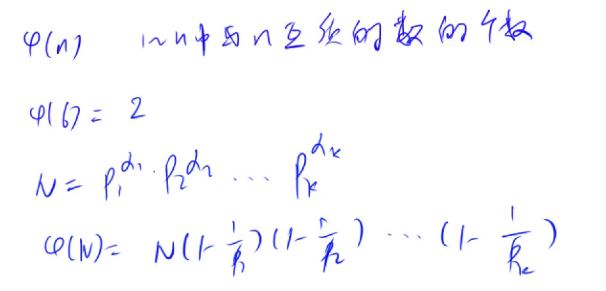 φ(n) 1~n中与n互质的数的个数
φ(6) = 2
N = p₁^α₁ · p₂^α₂ ... pₖ^αₖ
φ(N) = N(1-1/p₁)(1-1/p₂) ... (1-1/pₖ)